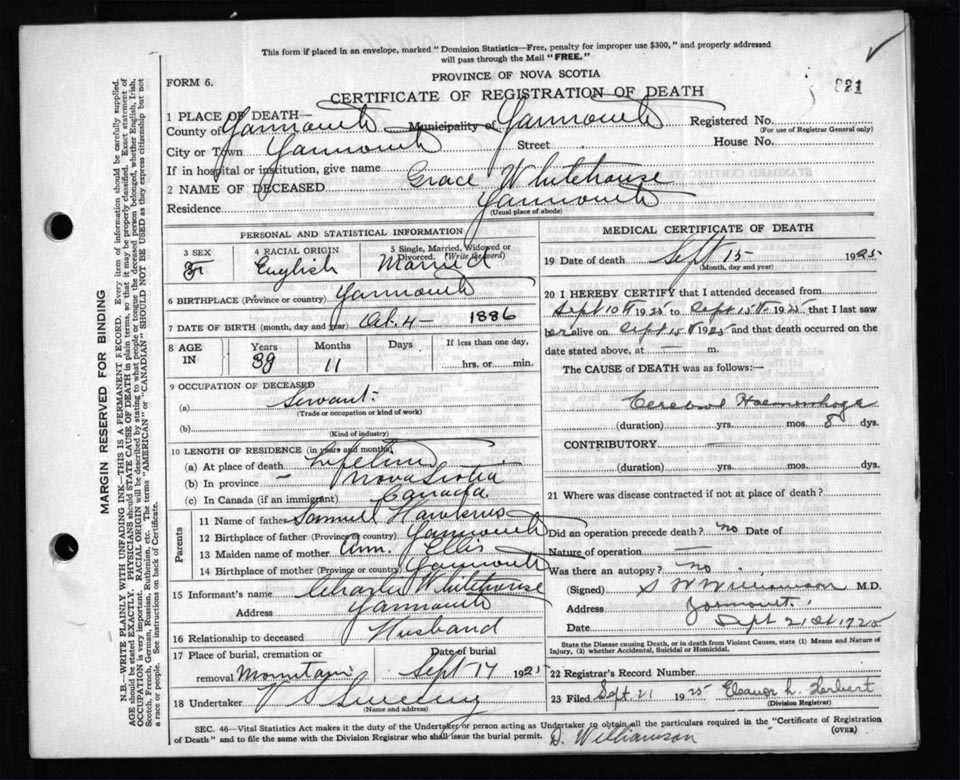 This form if placed in an envelope, marked "Dominion Statistics—Free, penalty for improper use $300," and properly addressed
will pass through the Mail "FREE."
PROVINCE OF NOVA SCOTIA
FORM 6.
CERTIFICATE OF REGISTRATION OF DEATH
821
1 PLACE OF DEATH—
County of Yarmouth Municipality of Yarmouth Registered No.
(For use of Registrar General only)
City or Town Yarmouth Street House No.
If in hospital or institution, give name
2 NAME OF DECEASED Grace Whitehouse
Residence Yarmouth
(Usual place of abode)
PERSONAL AND STATISTICAL INFORMATION
3 SEX F
4 RACIAL ORIGIN English
5 Single, Married, Widowed or Divorced. (Write the word) Married
6 BIRTHPLACE (Province or country) Yarmouth
7 DATE OF BIRTH (month, day and year) Oct. 4 — 1886
8 AGE IN Years 38 Months 11 Days If less than one day, hrs. or min.
9 OCCUPATION OF DECEASED
(a) Servant.
(Trade or occupation or kind of work)
(b)
(Kind of industry)
10 LENGTH OF RESIDENCE (in years and months)
(a) At place of death Lifetime
(b) In province — Nova Scotia
(c) In Canada (if an immigrant) Canada
Parents
11 Name of father Samuel Hawkins
12 Birthplace of father (Province or country) Yarmouth
13 Maiden name of mother Ann. Ellis
14 Birthplace of mother (Province or country) Yarmouth
15 Informant's name Charles Whitehouse
Address Yarmouth
16 Relationship to deceased Husband
17 Place of burial, cremation or removal Mountain Date of burial Sept 17 1925
18 Undertaker V S Sweeny
(Name and address)
MEDICAL CERTIFICATE OF DEATH
19 Date of death Sept 15 1925
(Month, day and year)
20 I HEREBY CERTIFY that I attended deceased from
Sept 10th 1925 to Sept 15th 1925 that I last saw
her alive on Sept 15th 1925 and that death occurred on the
date stated above, at — m.
The CAUSE of DEATH was as follows:—
Cerebral Haemorrhage
(duration) yrs. mos. 8 dys.
CONTRIBUTORY —
(duration) yrs. mos. dys.
21 Where was disease contracted if not at place of death?
Did an operation precede death? no Date of
Nature of operation —
Was there an autopsy? no
(Signed) S W Williamson M.D.
Address Yarmouth.
Date Sept 21st 1925
State the Disease causing Death, or in death from Violent Causes, state (1) Means and Nature of
Injury, (2) whether Accidental, Suicidal or Homicidal.
22 Registrar's Record Number
23 Filed Sept. 21 1925 Eleanor L. Herbert
(Division Registrar)
SEC. 46—Vital Statistics Act makes it the duty of the Undertaker or person acting as Undertaker to obtain all the particulars required in the "Certificate of Registration
of Death" and to file the same with the Division Registrar who shall issue the burial permit.
(OVER)
D. Williamson
MARGIN RESERVED FOR BINDING
N.B.—WRITE PLAINLY WITH UNFADING INK—THIS IS A PERMANENT RECORD. Every item of information should be carefully supplied.
AGE should be stated EXACTLY. PHYSICIANS should STATE CAUSE OF DEATH in plain terms, so that it may be properly classified. Exact statement of
OCCUPATION is very important. RACIAL ORIGIN will be described by stating to what people or tongue the deceased person belonged, whether English, Irish,
Scotch, French, German, Russian, Ruthenian, etc. The terms "AMERICAN" or "CANADIAN" SHOULD NOT BE USED as they express citizenship but not
a race or people. See instructions on back of Certificate.